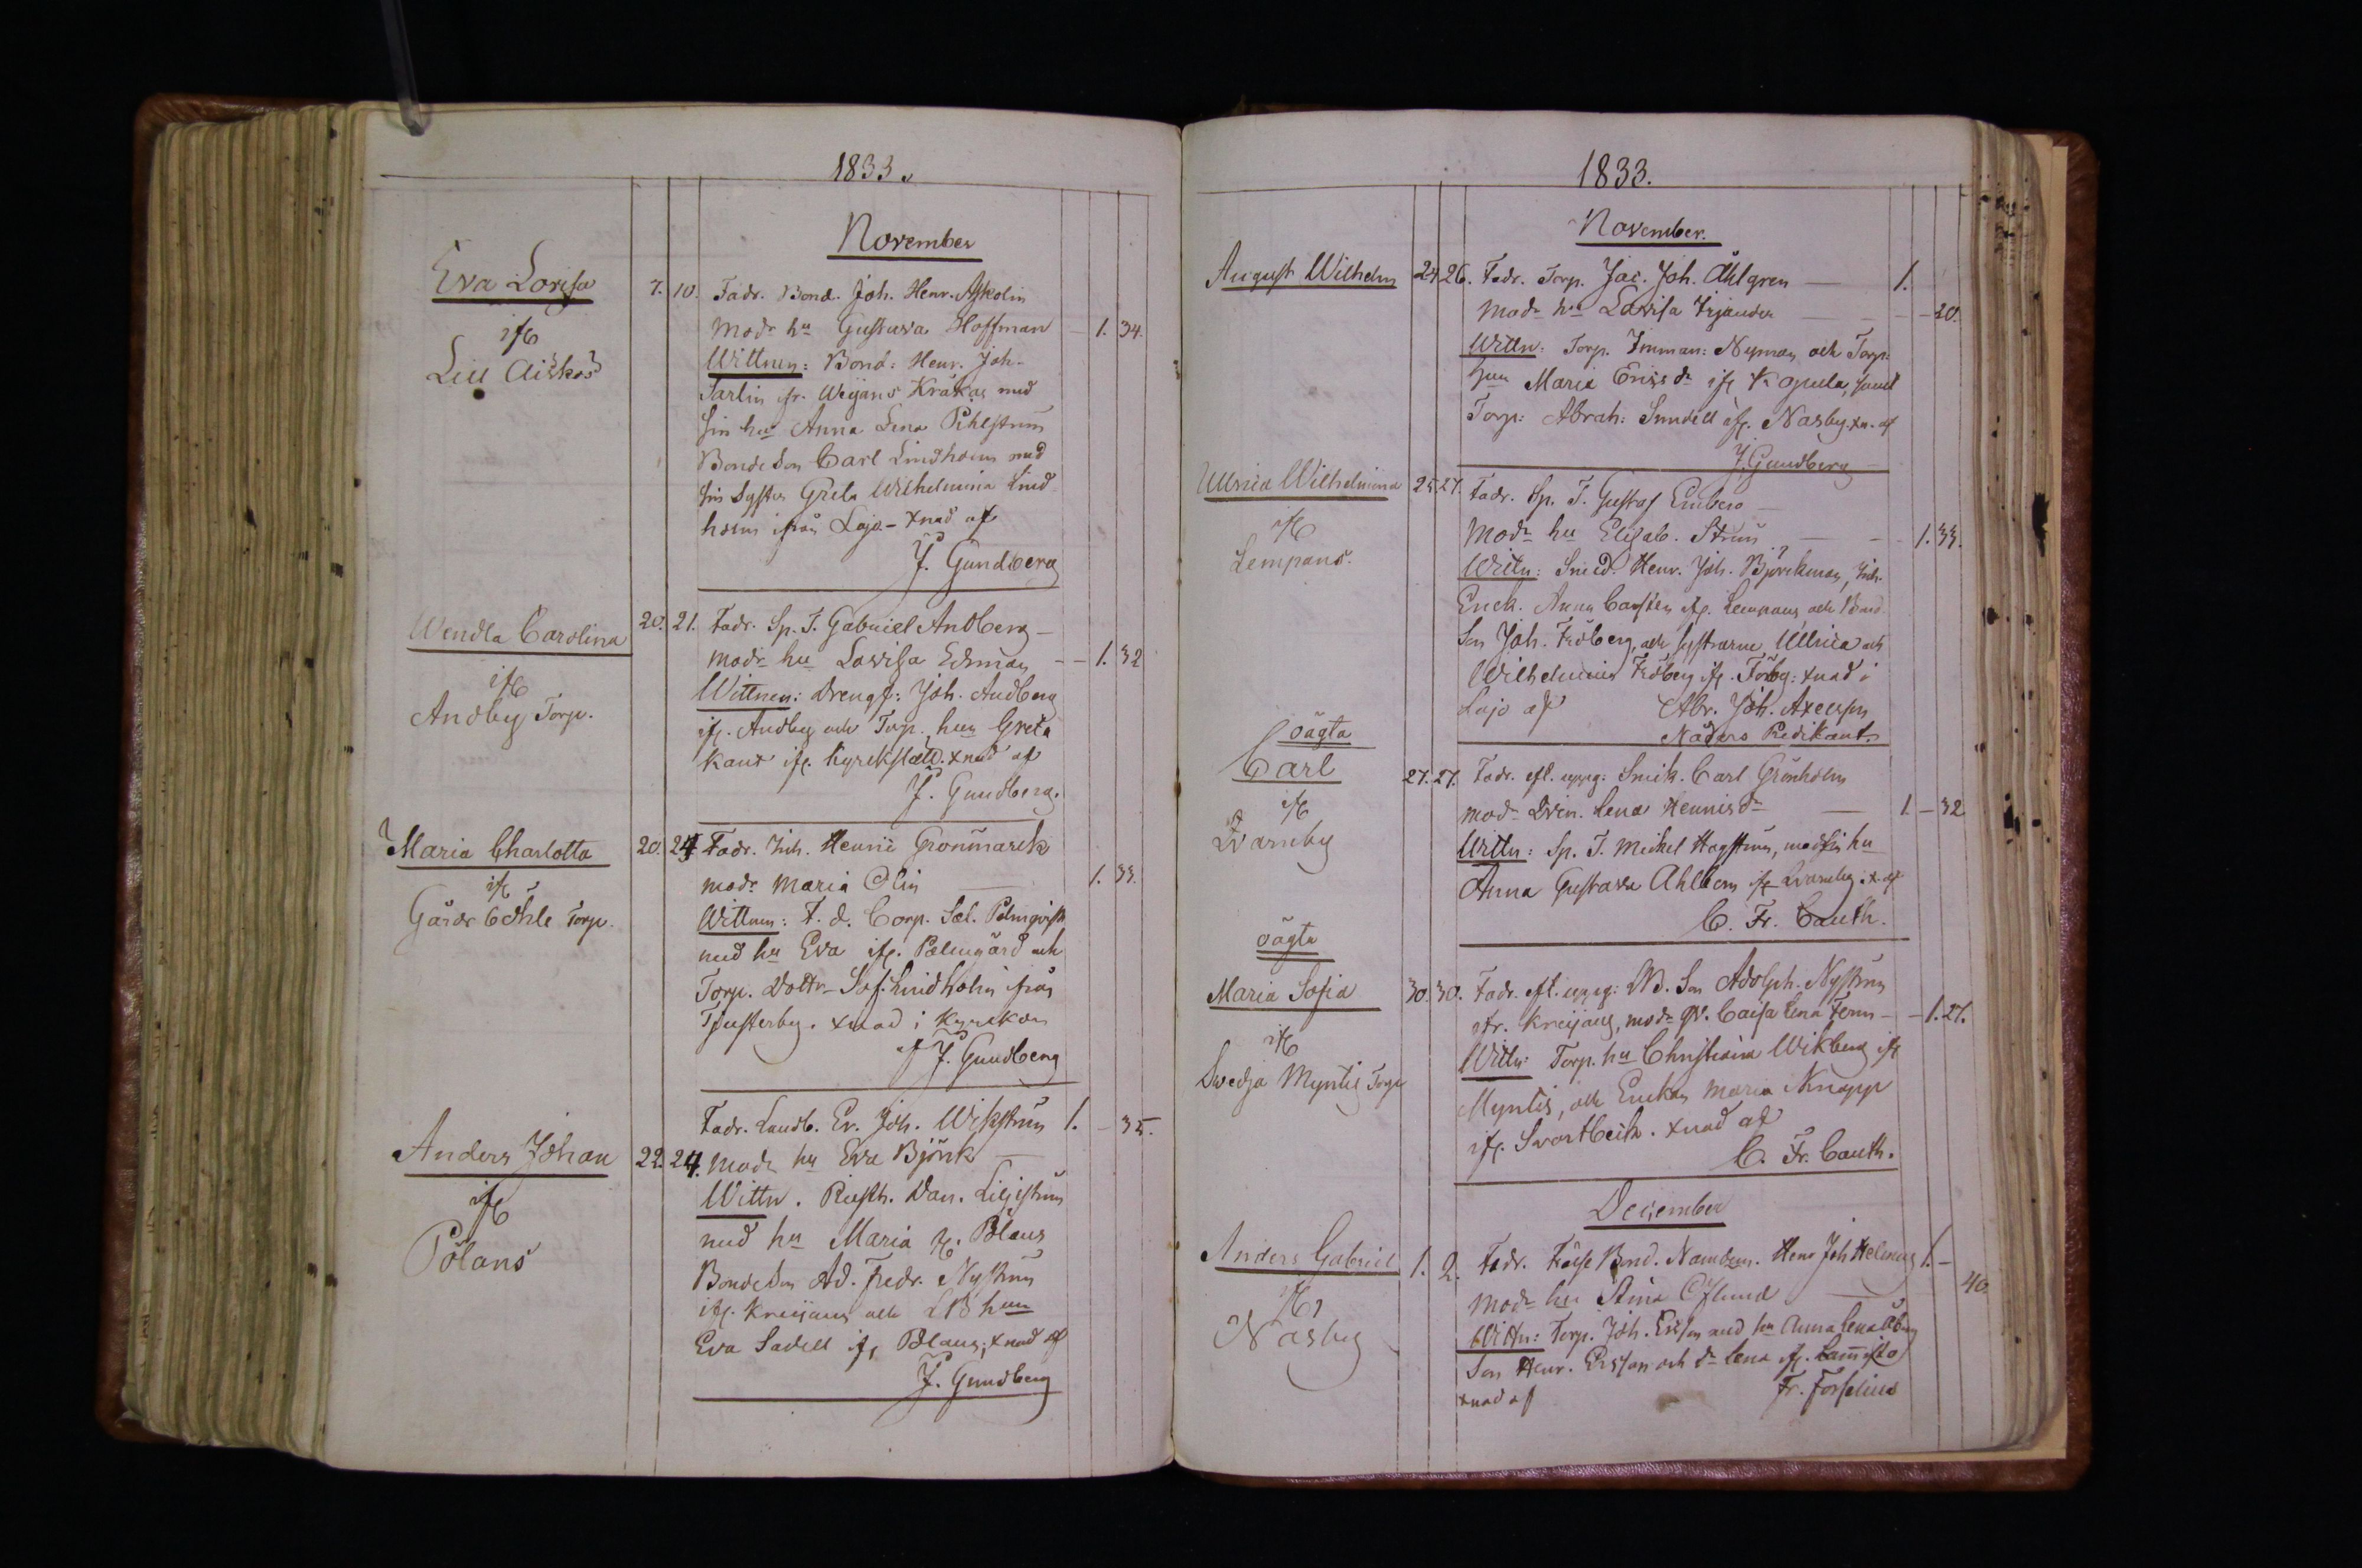 1833.
November
Eva Lovisa
ifr
Lill Aiskos
7. 10. Fadr. Bond. Joh. Henr. Askolin
Modr hu Gustava Hoffman - 1. 34.
Wittnen: Bond: Henr. Joh.
Sarlin fr. Weijans Kråkas med
sin hu Anna Lena Pihlström
Bonde Son Carl Lindholm med
sin Syster Greta Wilhelmina Lind
holm ifrån Lojo - xnad af
J. Gundberg
Wendla Carolina
ifr
Andby Torp.
20. 21. Fadr. Sp. T. Gabriel Andberg -
modr hu Lovisa Edman - - 1. 32
Wittnen: Drengf: Joh. Andberg
ifr. Andby och Torp. hun Greta
Kant ifr. Kyrckslätt. xnad af
J. Gundberg.
Maria Charlotta
ifr
Gårds Torp.
20. 24. Fadr. Inh. Henric Grönmarck
modr Maria Olin 1. 33.
Wittnen: F. d. Corp. Sal. Palmqvist
med hu Eva ifr. Palmgård och
Torp. Dottr. Sof. Lindholm ifrån
Tjusterby. xnad i Kyrckan
af J. Gundberg
Anders Johan
ifr
Pölans
22. 24. Fadr. Landb. Er. Joh. Wikström 1. - 35.
modr hu Eva Björk -
Wittn. Rusth. Dan. Liljström
med hu Maria fr. Pölans
Bonde Son Ad. Fredr. Nyström
ifr. Kreijans och LB hun
Eva Sadell ifr Pölans; xnad af
J. Gundberg
1833.
November.
August Wilhelm
24. 26. Fadr. Torp. Jac. Joh. Åhlgren - 1.
Modr hu Lovisa Irjander - - - 20.
Wittn: Torp. Imman: Nyman och Torp:
hun Maria Ericsdr ifr Kopula, samt
Torp: Abrah: Sundell ifr. Näsby. xn. af
J. Gundberg -
Ullrica Wilhelmina
ifr
Lempans.
25. 27. Fadr. Sp. T. Gustaf Enberg -
Modr hu Elisab. Ström - - 1. 33.
Wittn: Smed. Henr. Joh. Björckman, Inh.
Enck. Anna Carsten ifr. Lempans, och Bond.
Son Joh. Fröberg, och systrarne Ullrica och
Wilhelmina Fröberg ifr. xnad i
Lojo af Abr. Joh. Axelsson
Nådårs Predikant.
oägta
Carl
ifr
Qvarnby
27. 27. Fadr. eft. uppg: Snick. Carl Grönholm
modr Drän. Lena Hennisdr - 1. - 32
Wittn: Sp. T. Michel Hagström, med sin hu
Anna Gustava Ahlbom ifr Qvarnby. x. af
C. Fr. Cauth.
oägta
Maria Sofia
ifr
Svedja Myntis Torp
30. 30. Fadr. eft. uppg: Bd. Son Adolph. Nyström
ifr. Kreijans, modr qv. Caisa Lena Fern - - 1. 27.
Wittn: Torp. hu Christina Wikberg ifr
Myntis, och Enckan Maria Knapp
ifr. Svartbäck. xnad af
C. Fr. Cauth.
December
Anders Gabriel
ifr
Näsby
1. 2. Fadr. Frälse Bond. Nämdem. Henr Joh Helenius 1. -
Modr hu Stina Öflund - 40.
Wittn: Torp. Joh. Ersson med hu Anna Lena Åberg
Son Henr. Ersson och dr Lena ifr.
xnad af Fr. Forselius